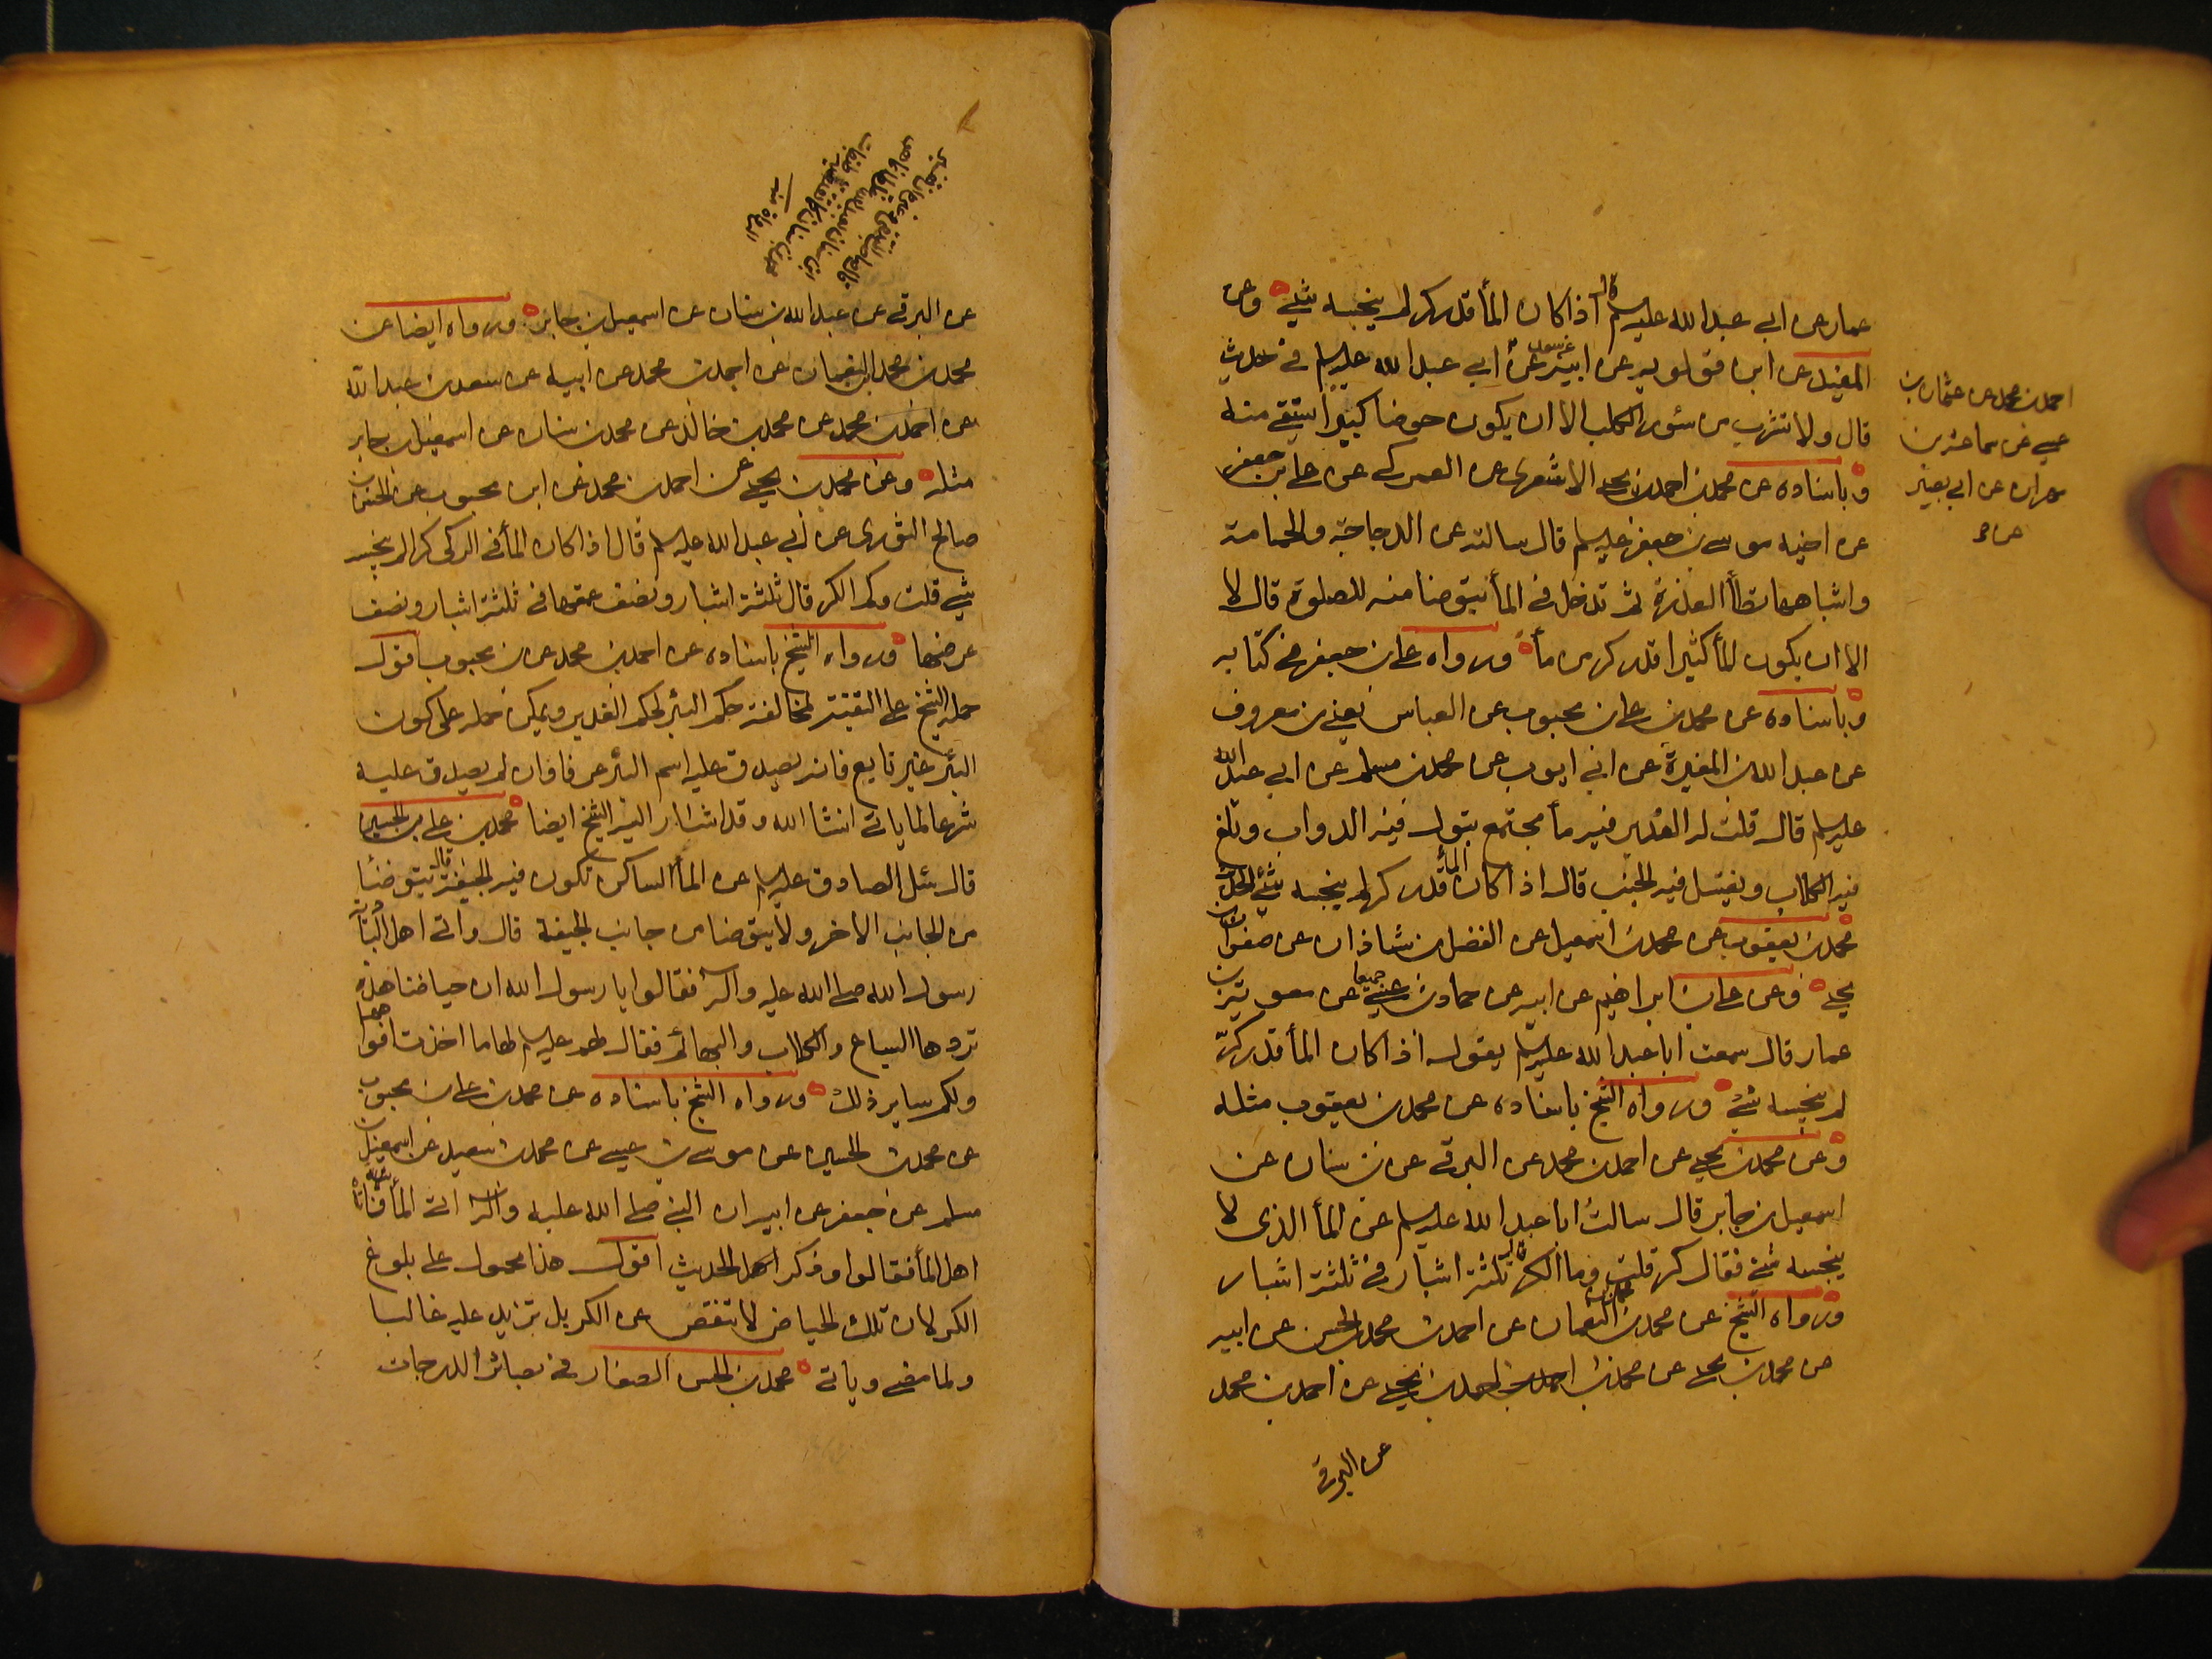 عمار عن ابي عبد الله عليه السلم قال اذا كان الماء قدر كر لم ينجسه شيء وعن
المفيد عن ابن قولويه عن ابيه عن سعد عن ابي عبد الله عليه السلم في حديث
قال ولا تشرب من سؤر الكلب الا ان يكون حوضا كبيرا يستقى منه
وباسناده عن محمد بن احمد بن يحيى الاشعري عن العمركي عن علي بن جعفر
عن اخيه موسى بن جعفر عليه السلم قال سالته عن الدجاجة والحمامة
واشباههما تطأ العذرة ثم تدخل في الماء يتوضا منه للصلوة قال لا
الا ان يكون الماء كثيرا قدر كر من ماء ورواه علي بن جعفر في كتابه
وباسناده عن محمد بن علي بن محبوب عن العباس يعني بن معروف
عن عبد الله بن المغيرة عن ابي ايوب عن محمد بن مسلم عن ابي عبد الله
عليه السلم قال قلت له الغدير فيه ماء مجتمع تبول فيه الدواب وتلغ
فيه الكلاب ويغتسل فيه الجنب قال اذا كان الماء قدر كر لم ينجسه شيء الحديث
محمد بن يعقوب عن محمد بن اسمعيل عن الفضل بن شاذان عن صفوان بن
يحيى وعن علي بن ابراهيم عن ابيه عن حماد بن عيسى جميعا عن معوية بن
عمار قال سمعت ابا عبد الله عليه السلم يقول اذا كان الماء قدر كر
لم ينجسه شيء ورواه الشيخ باسناده عن محمد بن يعقوب مثله
وعن محمد بن يحيى عن احمد بن محمد عن البرقي عن بن سنان عن
اسمعيل بن جابر قال سالت ابا عبد الله عليه السلم عن الماء الذي لا
ينجسه شيء فقال كر قلت وما الكر قال ثلثة اشبار في ثلثة اشبار
ورواه الشيخ عن محمد بن النعمان عن احمد بن محمد بن الحسن عن ابيه
عن محمد بن يحيى عن محمد بن احمد بن يحيى عن احمد بن محمد
عن البرقي
احمد بن محمد عن عثمان بن
عيسى عن سماعة بن
مهران عن ابي بصير
عن البرقي عن عبد الله بن سنان عن اسمعيل بن جابر ورواه ايضا عن
محمد بن محمد بن النعمان عن احمد بن محمد عن ابيه عن سعد بن عبد الله
عن احمد بن محمد عن محمد بن خالد عن محمد بن سنان عن اسمعيل بن جابر
مثله وعن محمد بن يحيى عن احمد بن محمد عن ابن محبوب عن الحسن بن
صالح الثوري عن ابي عبد الله عليه السلم قال اذا كان الماء في الركي كرا لم ينجسه
شيء قلت وكم الكر قال ثلثة اشبار ونصف عمقها في ثلثة اشبار ونصف
عرضها ورواه الشيخ باسناده عن احمد بن محمد عن بن محبوب اقول
حمله الشيخ على التقية لمخالفة حكم البئر لحكم الغدير ويمكن حمله على كون
البئر غير نابع فانه يصدق عليه اسم البئر عرفا وان لم يصدق عليه
شرعا لما ياتي انشا الله وقد اشار اليه الشيخ ايضا محمد بن علي بن الحسين
قال سئل الصادق عليه السلم عن الماء الساكن تكون فيه الجيفة قال يتوضا
من الجانب الاخر ولا يتوضا من جانب الجيفة قال واتى اهل البادية
رسول الله صلى الله عليه واله فقالوا يا رسول الله ان حياضنا هذه
تردها السباع والكلاب والبهائم فقال لهم عليه السلم لها ما اخذت افواهها
ولكم ساير ذلك ورواه الشيخ باسناده عن محمد بن علي بن محبوب
عن محمد بن الحسين عن موسى بن عيسى عن محمد بن سعيد عن اسمعيل بن
مسلم عن جعفر عن ابيه ان النبي صلى الله عليه واله اتى الماء فاتاه
اهل الماء فقالوا وذكر الحديث اقول هذا محمول على بلوغ
الكر لان تلك الحياض لا تنقص عن الكر بل تزيد عليه غالبا
ولما مضى وياتي محمد بن الحسن الصفار في بصائر الدرجات